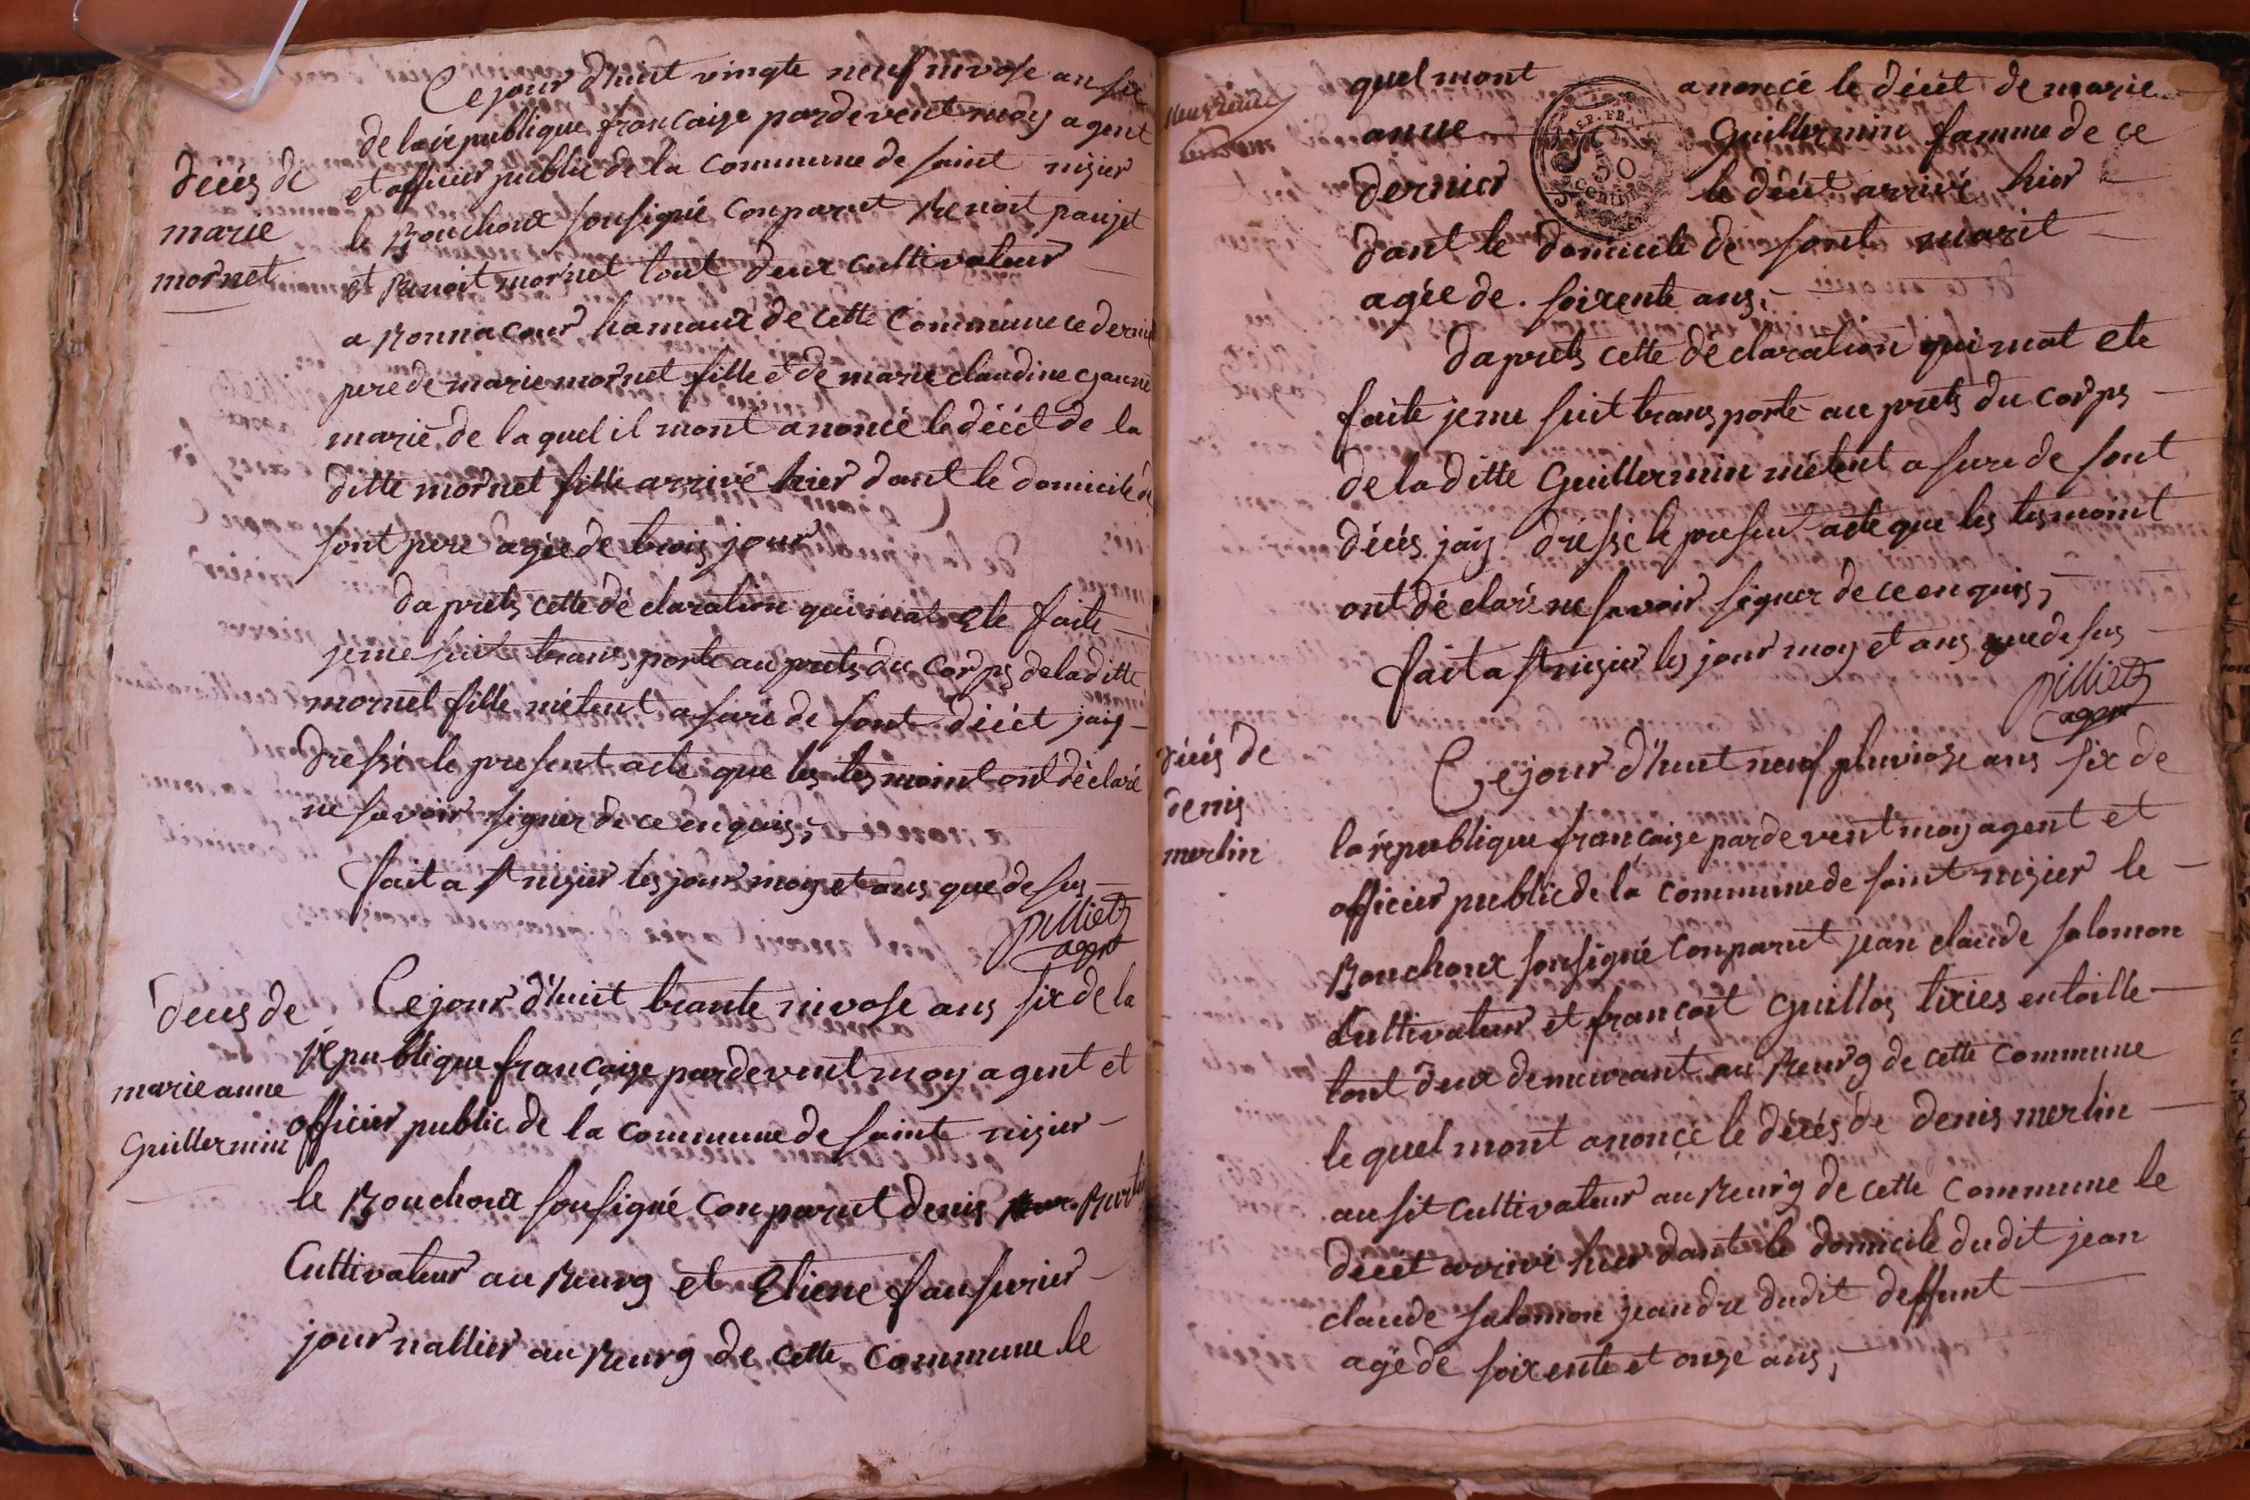 Cejour d'huit vingte neuf nivose an six
de la republique francaise pardevent moy agent
et officier public de la commune de saint nizier
le Bouchoux sousigné conparut Benoit panjet
et Benoit mornet tout deux cultivateur
a Bonnacour hamaux de cette Commune ce dernie
pere de marie mornet fille & de marie claudine
marié de la quel il mont anoncé le décét de la
ditte mornet fille arrivé hier dant le domicile de
sont pere agée de trois jour
daprets cette dé claration qui mat ete faite
jeme suit trans porte au prets du corps de la ditte
mornet fille métent asuré de sont décét jaiy
dressé le present acte que les tesmoint ont déclaré
ne savoir signer de ce enquis;
fait a st nizier les jour moy et ans que desus
pilliet
agent
décés de
marie
mornet
Ce jour d'huit trante nivose ans six de la
république francaise pardevent moy agent et
officier public de la commune de saint nizier
le Bouchoux sousigné conparut denis
Cultivateur au Beurg et Etiene faufurier
journallier au Beurg de cette commune le
deces de
marie anne
Guillermin
quel mont anoncé le décét de marie
anne Guillermin famme de ce
dernier le décét arrivé hier
dant le domicile de sont marit
agée de soixente ans;
30
daprets cette déclaration qui mat ete
faite jeme suit trans porté au prets du corps
de la ditte Guillermin métent asuré de sont
décés jaiy dréssé le present acte que les tesmoint
ont déclaré ne savoir signer de ce enquis;
fait a st nizier les jour moy et ans que desus
pilliet
agent
décés de
denis
merlin
Cejour d'huit neuf pluviose ans six de
la république francaise pardevent moy agent et
officier public de la commune de saint nizier le
Bouchoux sousigné conparut jean claude salomon
Cultivateur et françoit Guillos tixies en toille
tout deux demeurant au Beurg de cette commune
le quel mont anoncé le décés de denis merlin
ausit cultivateur au Beurg de cette commune le
décét arrivé hier dant le domicile dudit jean
claude salomon jeandre dudit deffunt
agé de soixente et onze ans;